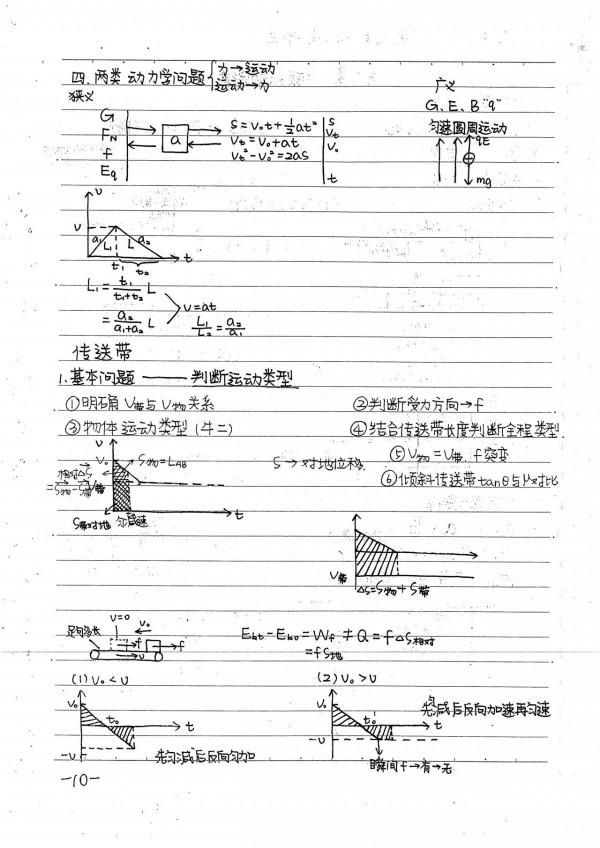 四.两类动力学问题 { 力→运动
运动→力
狭义
广义
G、E、B "q"
匀速圆周运动
G
F_N
f
Eq
a
S=V₀t+½at²
V_t=V₀+at
V_t²-V₀²=2aS
S
V_t
V₀
t
qE
mg
υ
υ
a₁ L₁ L a₂
t₁ t₂
t
L₁ = t₁/(t₁+t₂) L
= a₂/(a₁+a₂) L
υ=at
L₁/L₂ = a₂/a₁
传送带
1.基本问题 —— 判断运动类型
①明确 V带与V物关系
②判断受力方向→f
③物体运动类型(牛二)
④结合传送带长度判断全程类型
⑤V物=V带 f突变
⑥倾斜传送带tanθ与μ对比
υ
V₀
S物=L_AB
S→对地位移
相对ΔS
=S物-S带
V带
S带对地
t
V带
ΔS=S物+S带
υ=0
V₀
足够长
f
f
υ
E_kt-E_k0=W_f≠Q=fΔS相对
=fS地
(1) V₀<υ
(2) V₀>υ
V₀
t₀
t
-υ
先匀减后反向匀加
V₀
t₀
t
-υ
先减后反向加速再匀速
瞬间f→有→无
-10-